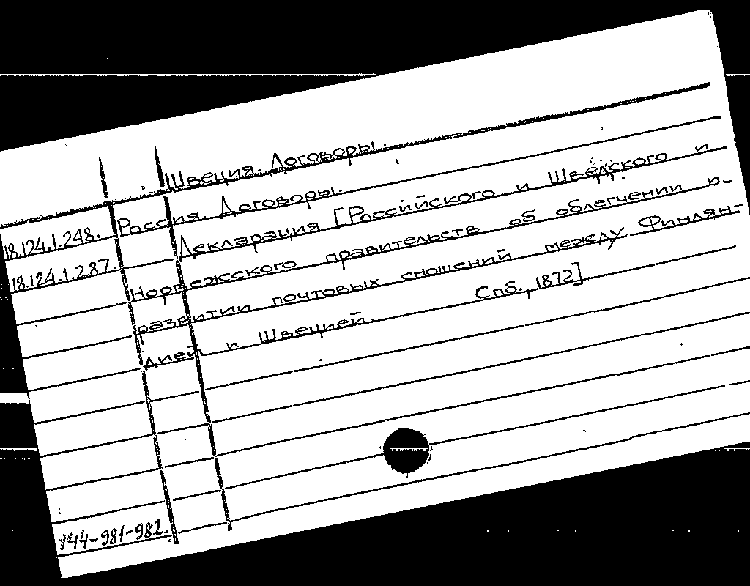 Швеция. Договоры.
18.124.1.248. Россия. Договоры.
18.124.1.287. Декларация [Российского и Шведского и
Норвежского правительств об облегчении и
развитии почтовых сношений между Финлян-
дией и Швецией. Спб., 1872]
У44-981-982.